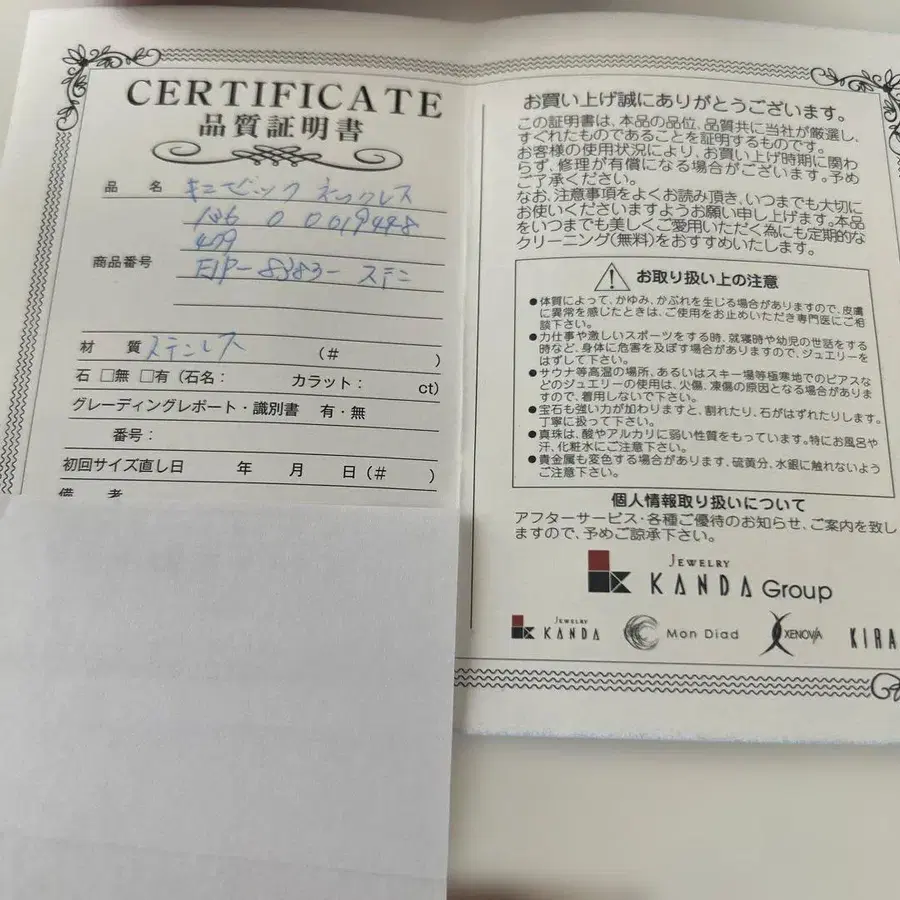 CERTIFICATE
品質証明書
品 名 キュービック ネックレス
106 0 0019448
409
商品番号 EJP-8383-ステン
材 質 ステンレス (# )
石 □無 □有 (石名: カラット: ct)
グレーディングレポート・識別書 有・無
番号:
初回サイズ直し日 年 月 日 (# )
備 考
お買い上げ誠にありがとうございます。
この証明書は、本品の品位、品質共に当社が厳選し、
すぐれたものであることを証明するものです。
お客様の使用状況により、お買い上げ時期に関わ
らず、修理が有償になる場合がございます。予め
ご了承ください。
なお、注意事項をよくお読み頂き、いつまでも大切に
お使いくださいますようお願い申し上げます。本品
をいつまでも美しくご愛用いただく為にも定期的な
クリーニング(無料)をおすすめいたします。
お取り扱い上の注意
●体質によって、かゆみ、かぶれを生じる場合がありますので、皮膚
に異常を感じたときは、ご使用をお止めいただき専門医にご相
談下さい。
●力仕事や激しいスポーツをする時、就寝時や幼児の世話をする
時など、身体に危害を及ぼす場合がありますので、ジュエリーを
はずして下さい。
●サウナ等高温の場所、あるいはスキー場等極寒地でのピアスな
どのジュエリーの使用は、火傷、凍傷の原因となる場合がありま
すので、着用しないで下さい。
●宝石も強い力が加わりますと、割れたり、石がはずれたりします。
丁寧に扱って下さい。
●真珠は、酸やアルカリに弱い性質をもっています。特にお風呂や
汗、化粧水にご注意下さい。
●貴金属も変色する場合があります、硫黄分、水銀に触れないよう
ご注意下さい。
個人情報取り扱いについて
アフターサービス・各種ご優待のお知らせ、ご案内を致し
ますので、予めご諒承下さい。
JEWELRY
KANDA Group
JEWELRY
KANDA Mon Diad XENOVIA KIRA